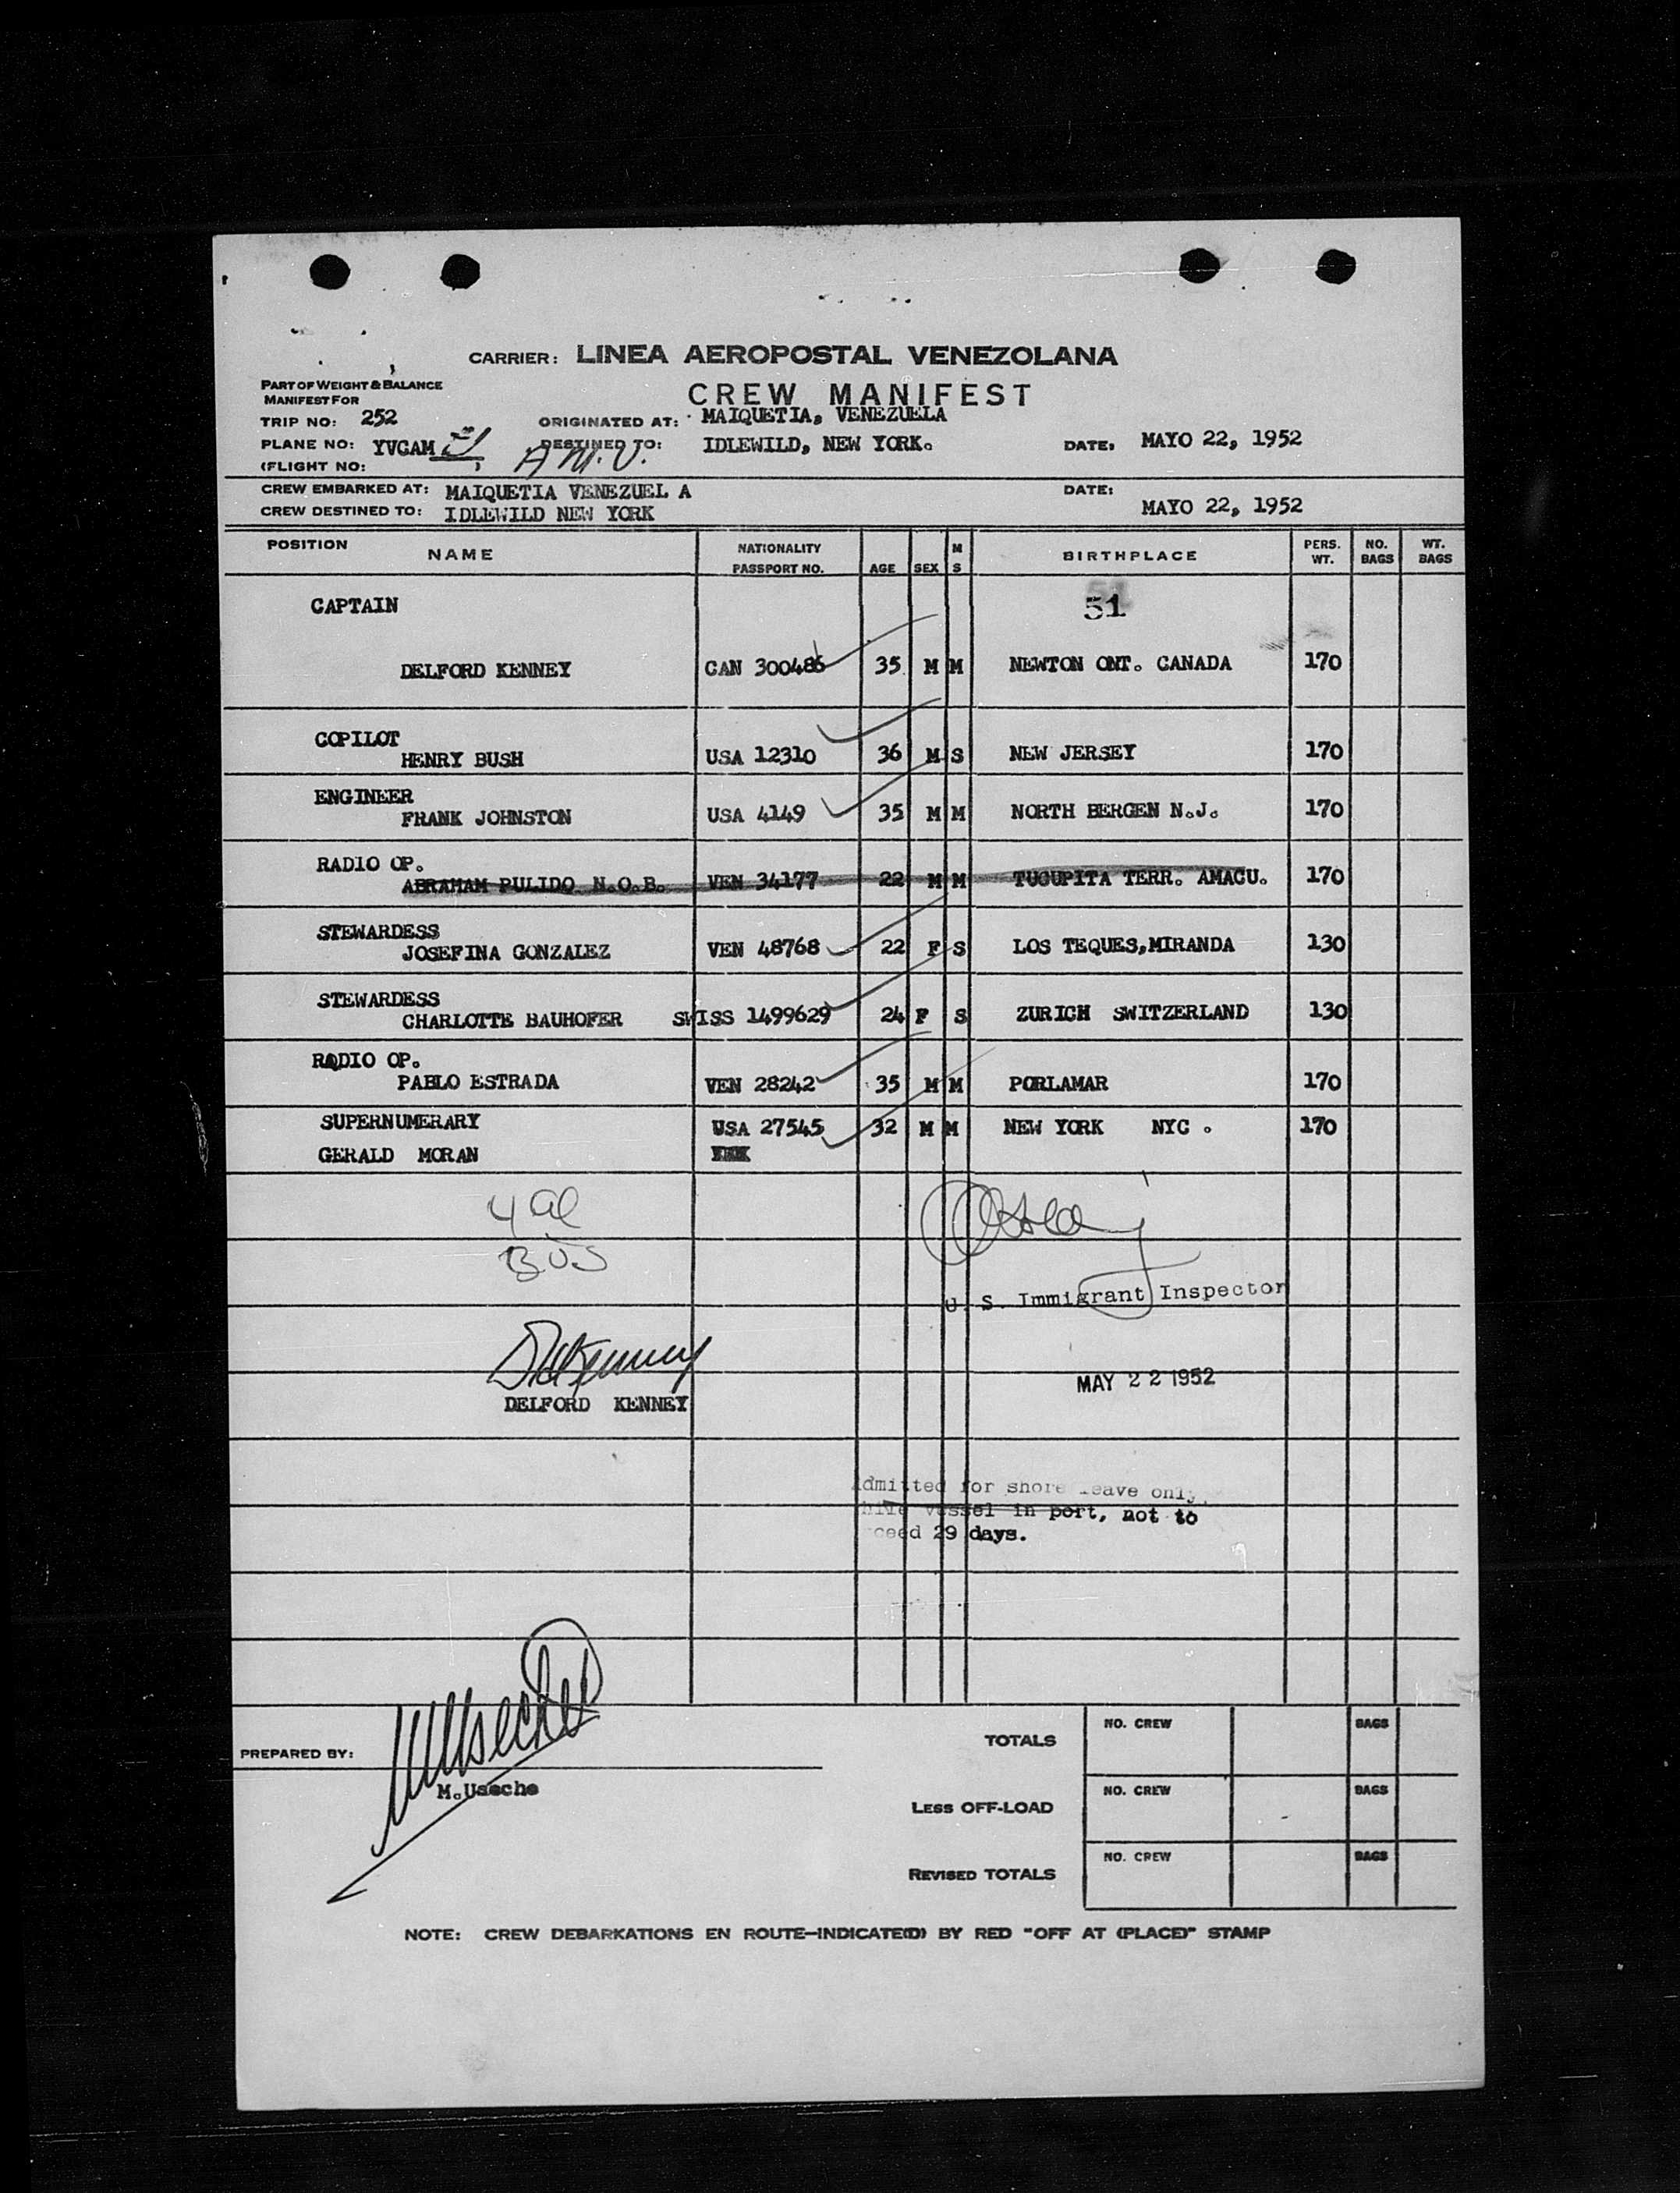 CARRIER: LINEA AEROPOSTAL VENEZOLANA
CREW MANIFEST
PART OF WEIGHT & BALANCE
MANIFEST FOR
TRIP NO: 252 ORIGINATED AT: MAIQUETIA, VENEZUELA
PLANE NO: YVCAM DESTINED TO: IDLEWILD, NEW YORK. DATE, MAYO 22, 1952
(FLIGHT NO: )
CREW EMBARKED AT: MAIQUETIA VENEZUEL A DATE:
CREW DESTINED TO: IDLEWILD NEW YORK MAYO 22, 1952
POSITION NAME NATIONALITY PASSPORT NO. AGE SEX M S BIRTHPLACE PERS. WT. NO. BAGS WT. BAGS
CAPTAIN 51
DELFORD KENNEY CAN 300486 35 M M NEWTON ONT. CANADA 170
COPILOT
HENRY BUSH USA 12310 36 M S NEW JERSEY 170
ENGINEER
FRANK JOHNSTON USA 4149 35 M M NORTH BERGEN N.J. 170
RADIO OP.
ABRAHAM PULIDO N.O.B. VEN 34177 22 M M TUCUPITA TERR. AMACU. 170
STEWARDESS
JOSEFINA GONZALEZ VEN 48768 22 F S LOS TEQUES,MIRANDA 130
STEWARDESS
CHARLOTTE BAUHOFER SWISS 1499629 24 F S ZURICH SWITZERLAND 130
RADIO OP.
PABLO ESTRADA VEN 28242 35 M M PORLAMAR 170
SUPERNUMERARY USA 27545 32 M M NEW YORK NYC . 170
GERALD MORAN
U. S. Immigrant Inspector
DELFORD KENNEY
MAY 22 1952
dmitted for shore leave only,
hile vessel in port, not to
ceed 29 days.
PREPARED BY:
M.Useche
TOTALS NO. CREW BAGS
LESS OFF-LOAD NO. CREW BAGS
REVISED TOTALS NO. CREW BAGS
NOTE: CREW DEBARKATIONS EN ROUTE—INDICATE(D) BY RED "OFF AT (PLACE)" STAMP